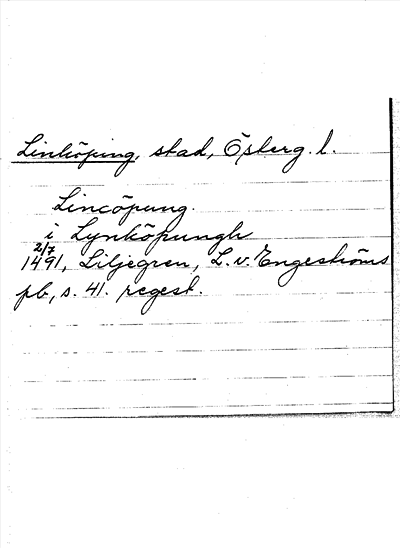 Linköping, stad, Österg. l.
Lincöpung.
i Lynköpungh
2/7
1491, Liljegren, L. v. Engeströms
pb, s. 41. regest.